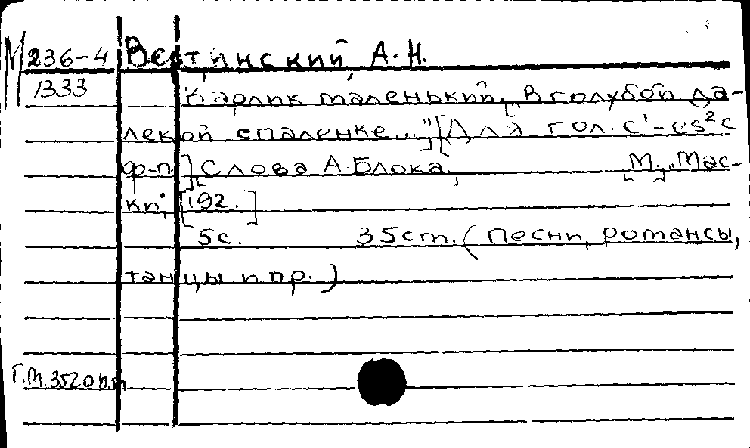 М 236-4 Вертинский, А.Н.
1333 Карлик маленький. "В голубой да-
лекой спаленке..." [Для гол. с¹-es² с
ф-п.] Слова А. Блока. М., "Мас-
ки", [192.]
5с. 35ст. (Песни, романсы,
танцы и пр.)
Г.М. 3520